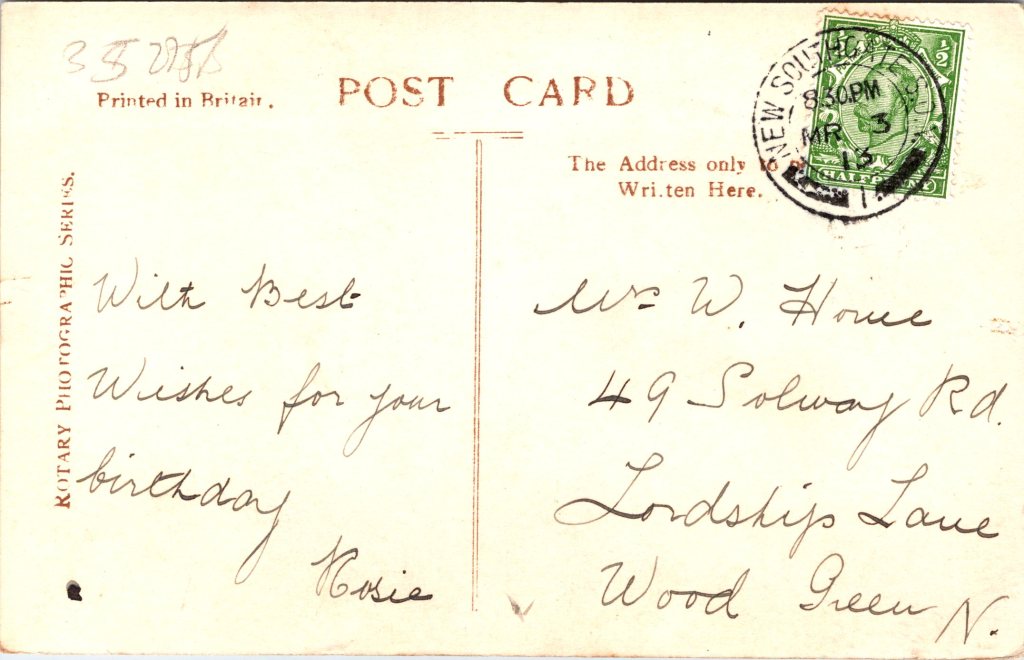 Printed in Britain.
POST CARD
The Address only to
Written Here.
NEW SOUTHGATE
8.30PM
MR 3
13
½
HALFPENNY
ROTARY PHOTOGRAPHIC SERIES.
With Best
Wishes for your
birthday
Rosie
Mrs W. Home
49 Solway Rd.
Lordship Lane
Wood Green N.